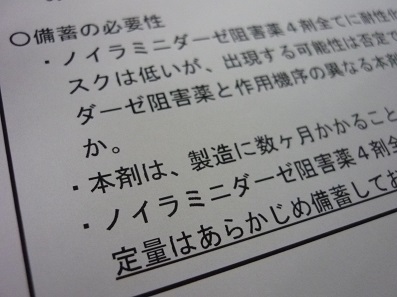 ○備蓄の必要性
・ノイラミニダーゼ阻害薬4剤全てに耐性化
スクは低いが、出現する可能性は否定で
ダーゼ阻害薬と作用機序の異なる本剤
か。
・本剤は、製造に数ヶ月かかること
・ノイラミニダーゼ阻害薬4剤全
定量はあらかじめ備蓄してお